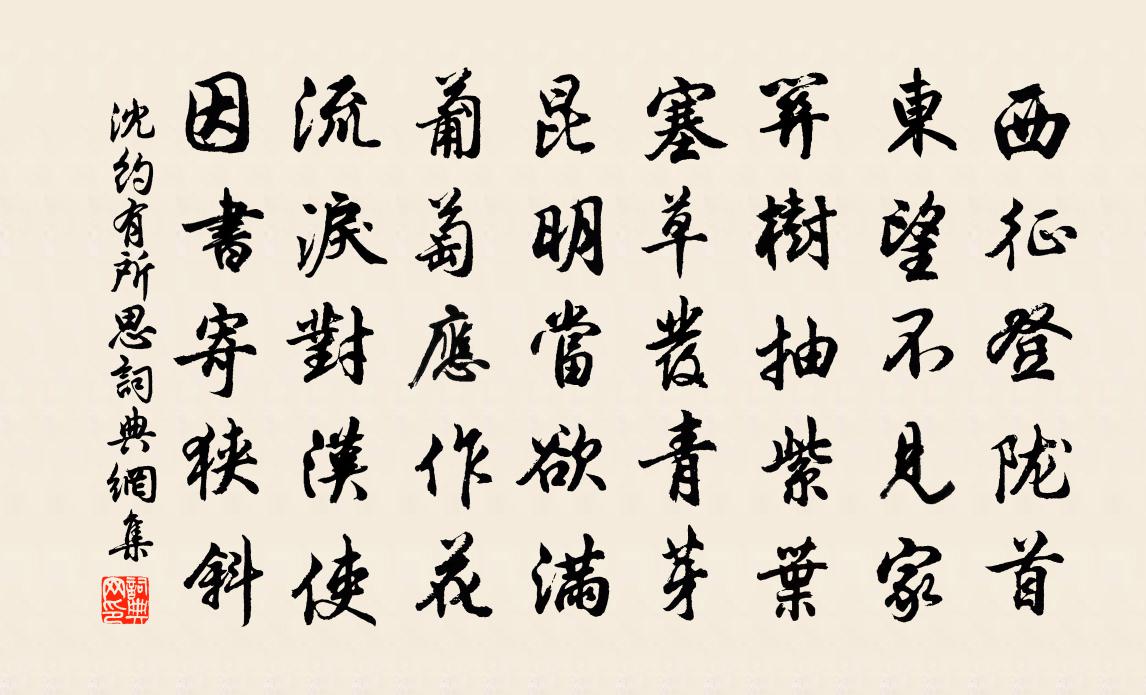 西征登陇首
東望不見家
關樹抽紫葉
塞草發青芽
昆明當欲滿
葡萄應作花
流淚對漢使
因書寄狹斜
沈約有所思詞典網集
詞典网印